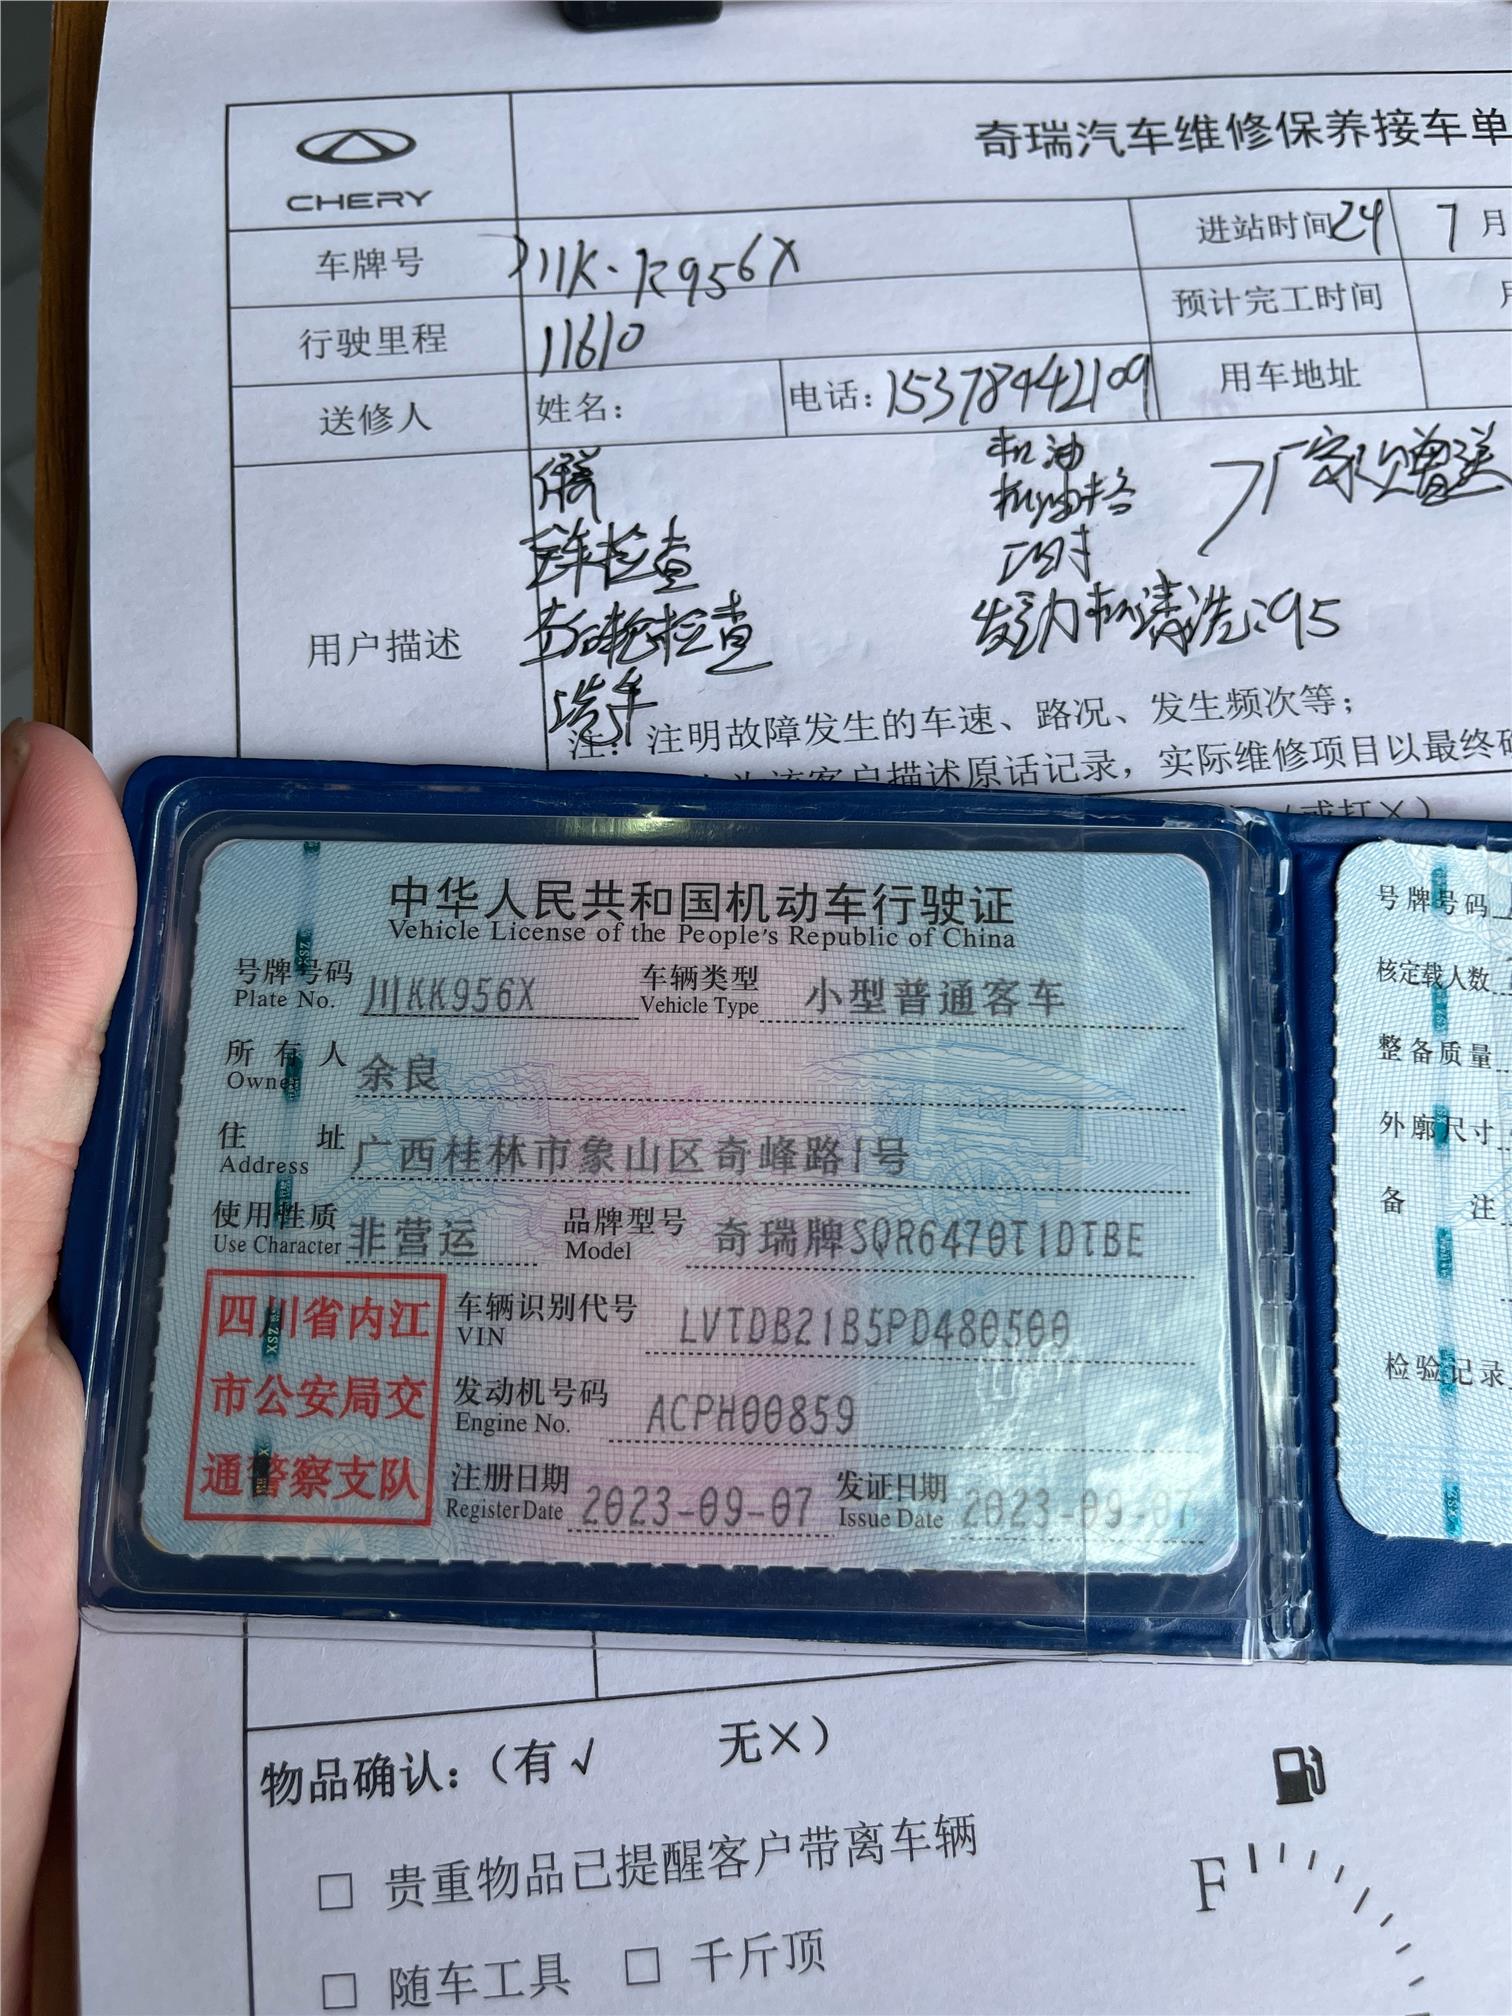 CHERY
奇瑞汽车维修保养接车单
车牌号 川K·K956X 进站时间 24 7月
行驶里程 11610 预计完工时间
送修人 姓名: 电话: 15378442109 用车地址
用户描述
保养
全车检查
方向轮检查
洗车
机油
机油格
工时
厂家赠送
发动机清洗:95
注: 注明故障发生的车速、路况、发生频次等;
客户描述原话记录,实际维修项目以最终
(或打×)
中华人民共和国机动车行驶证
Vehicle License of the People's Republic of China
号牌号码 川KK956X 车辆类型 小型普通客车
Plate No. Vehicle Type
所有人 余良
Owner
住址 广西桂林市象山区奇峰路1号
Address
使用性质 非营运 品牌型号 奇瑞牌SQR6470T1DTBE
Use Character Model
四川省内江
市公安局交
通警察支队
车辆识别代号 LVTDB21B5PD480500
VIN
发动机号码 ACPH00859
Engine No.
注册日期 2023-09-07 发证日期 2023-09-07
Register Date Issue Date
号牌号码
核定载人数
整备质量
外廓尺寸
备注
检验记录
物品确认:(有√ 无×)
□ 贵重物品已提醒客户带离车辆
□ 随车工具 □ 千斤顶
F